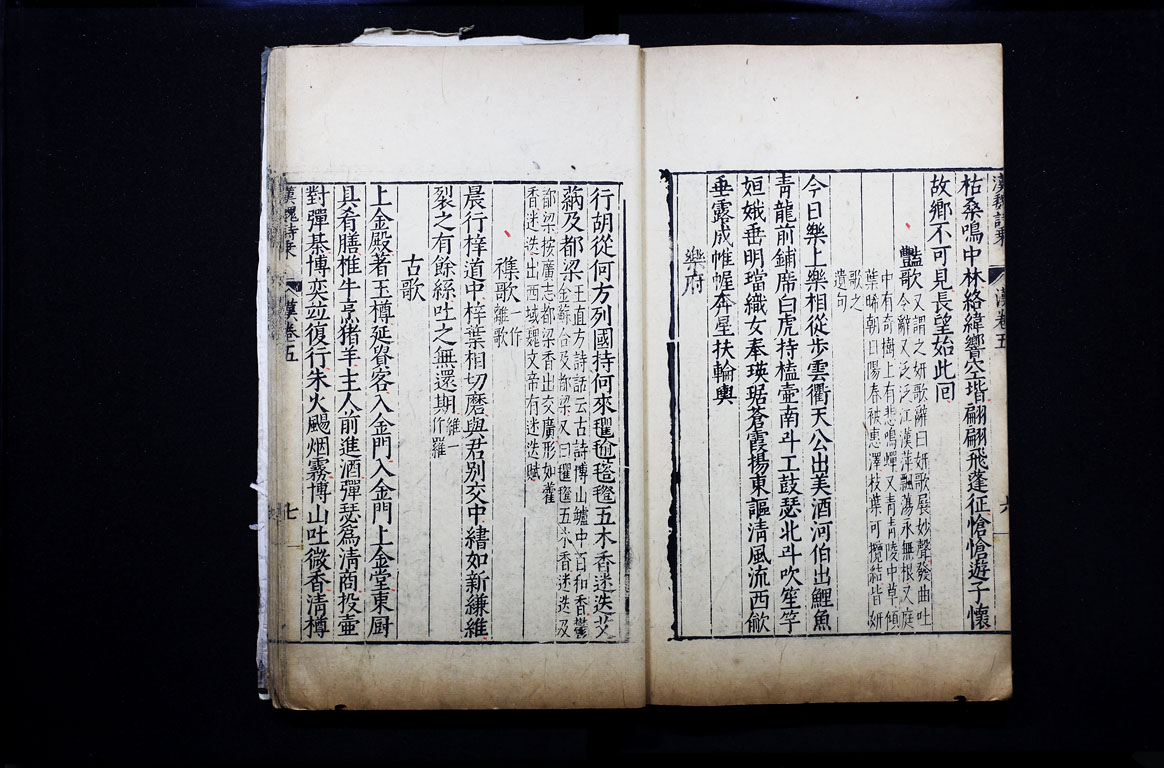 漢魏詩乘 漢卷五 六
枯桑鳴中林絡緯響空堦翩翩飛蓬征愴愴遊子懷
故鄉不可見長望始此回
豔歌
又謂之妍歌辭曰妍歌展妙聲發曲吐
令辭又泛泛江漢萍飄蕩永無根又庭
中有奇樹上有悲鳴蟬又青青陵中草傾
葉晞朝日陽春被惠澤枝葉可攬結皆妍
歌之
遺句
今日樂上樂相從步雲衢天公出美酒河伯出鯉魚
青龍前鋪席白虎持榼壷南斗工鼓瑟北斗吹笙竽
姮娥垂明璫織女奉瑛琚蒼霞揚東謳清風流西歈
垂露成帷幄奔星扶輪輿
樂府
行胡從何方列國持何來㲮㲣毾㲪五木香迷迭艾
蒳及都梁
王直方詩話云古詩博山鑪中百和香鬱
金蘇合及都梁又曰氍毹五木香迷迭及
都梁按廣志都梁香出交廣形如藿
香迷迭出西域魏文帝有迷迭賦
襍歌
一作
離歌
晨行梓道中梓葉相切磨與君別交中繣如新縑維
裂之有餘絲吐之無還期
維一
作羅
古歌
上金殿著玉樽延貴客入金門入金門上金堂東厨
具肴膳椎牛烹猪羊主人前進酒彈瑟爲清商投壷
對彈棊博奕竝復行朱火颺烟霧博山吐微香清樽
漢魏詩乘 漢卷五 七